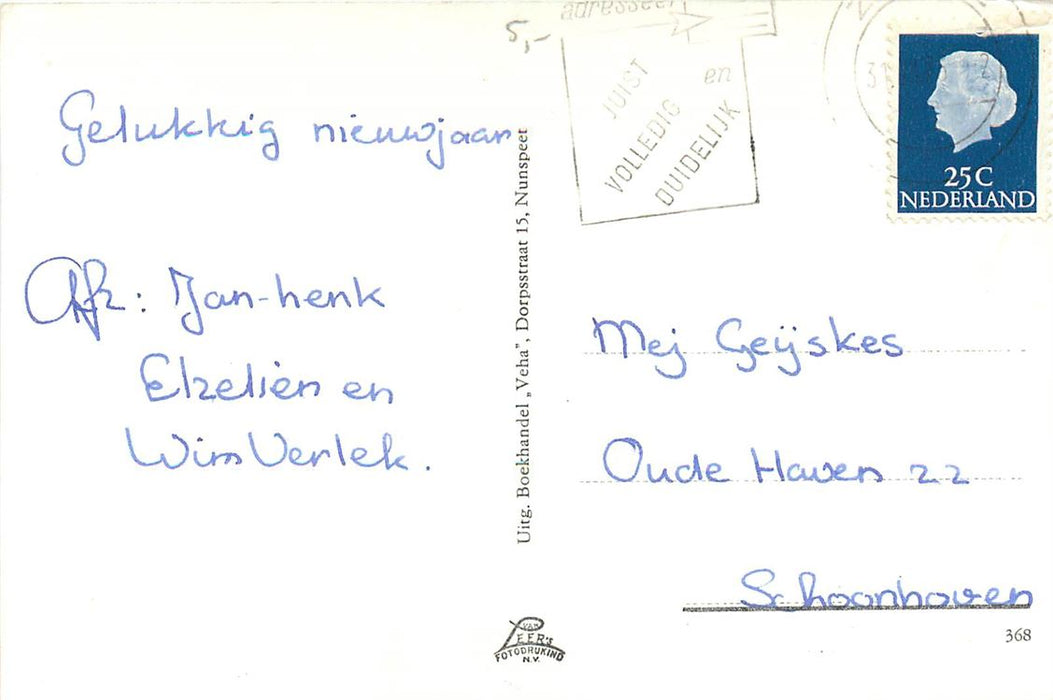 5,-
adresseer
JUIST
en
VOLLEDIG
DUIDELIJK
31
25C
NEDERLAND
Gelukkig nieuwjaar
Afz: Jan-henk
Elzelien en
Wim Verlek.
Uitg. Boekhandel „Veha”, Dorpsstraat 15, Nunspeet
Mej Geijskes
Oude Haven 22
Schoonhoven
368
VAN
LEER'S
FOTODRUKIND
N.V.